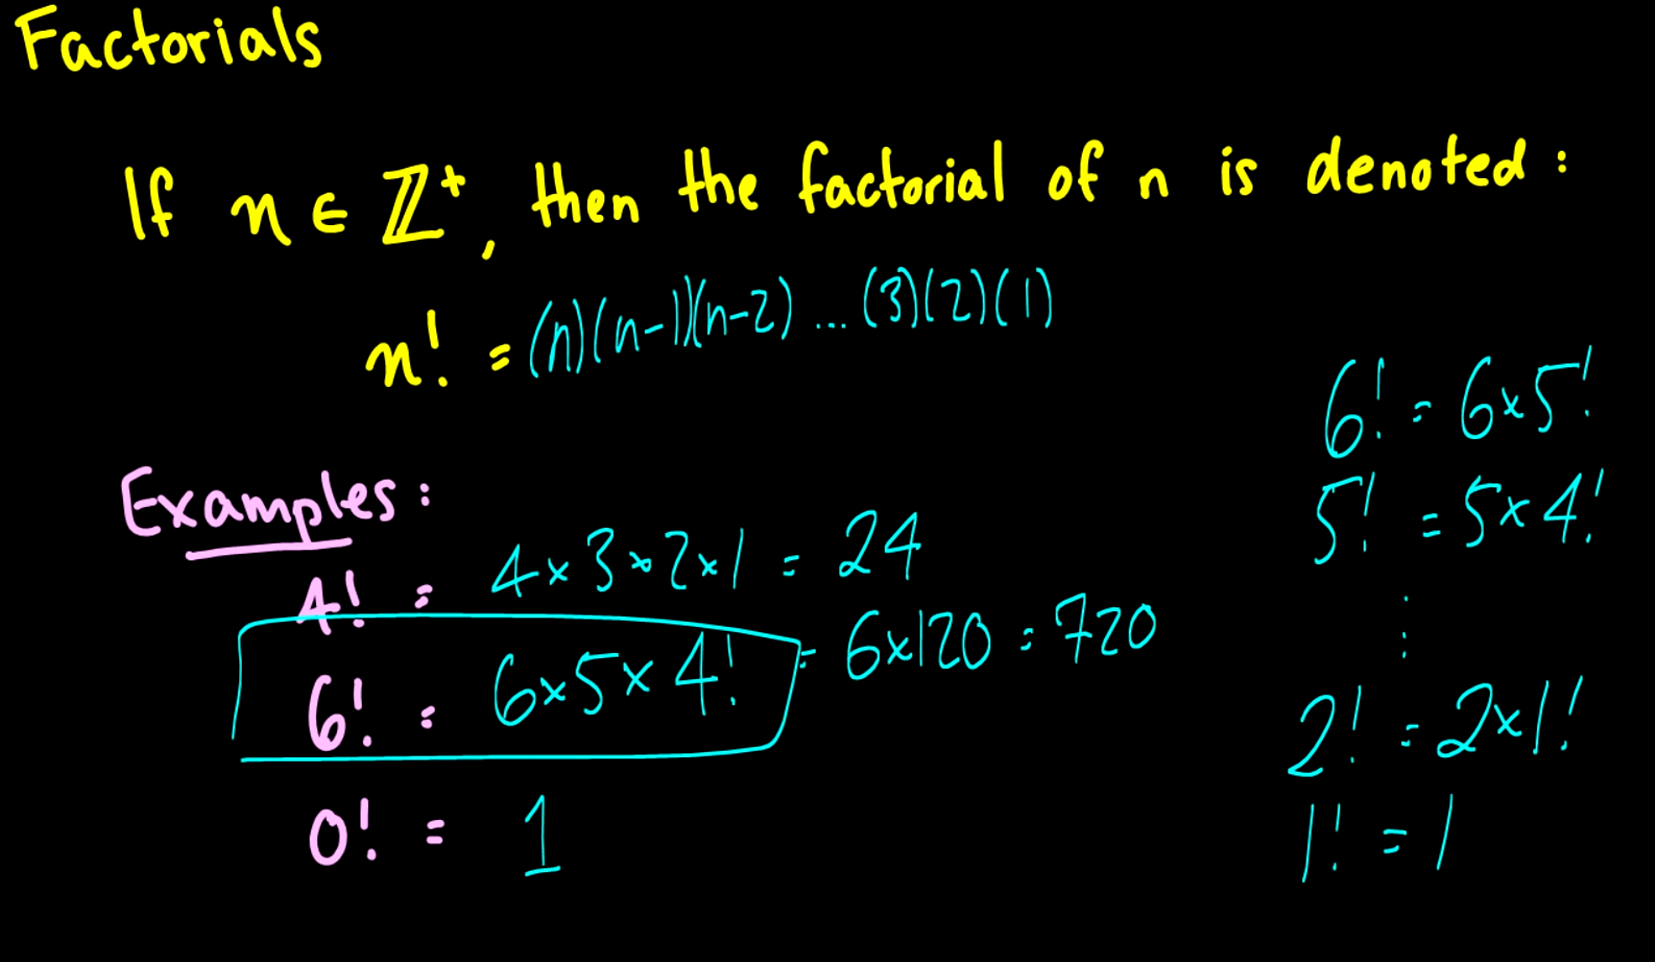 Factorials
If n ∈ ℤ⁺, then the factorial of n is denoted:
n! = (n)(n-1)(n-2) ... (3)(2)(1)
Examples:
4! = 4 × 3 × 2 × 1 = 24
6! = 6×5×4! = 6×120 = 720
0! = 1
6! = 6×5!
5! = 5×4!
⋮
2! = 2×1!
1! = 1